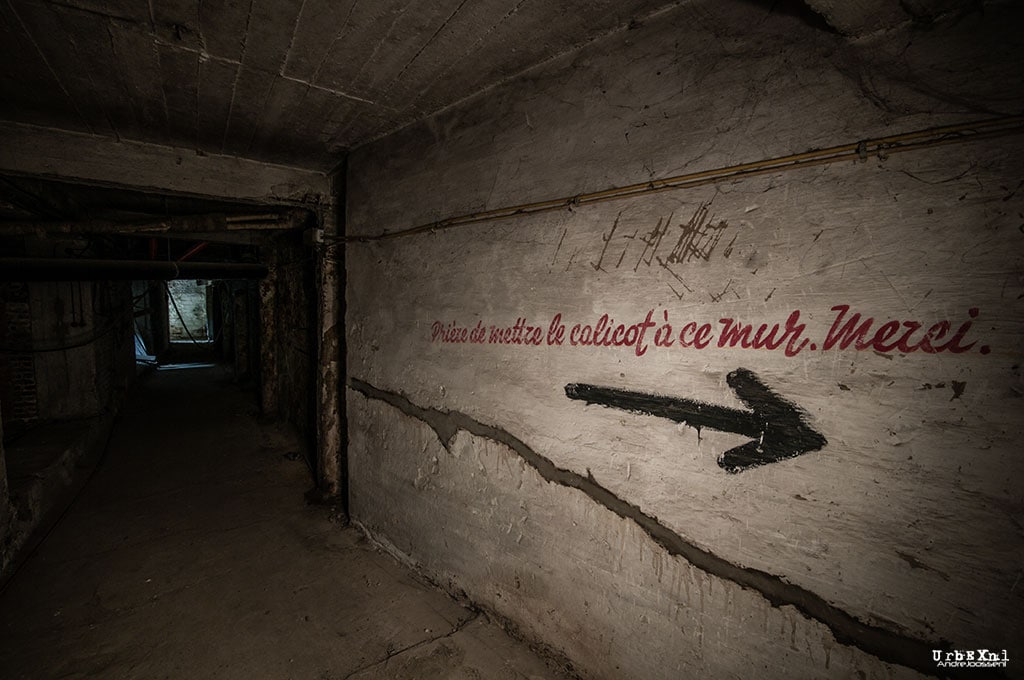 Prière de mettre le calicot à ce mur. Merci.
UrbEXnl
AndreJoosseni